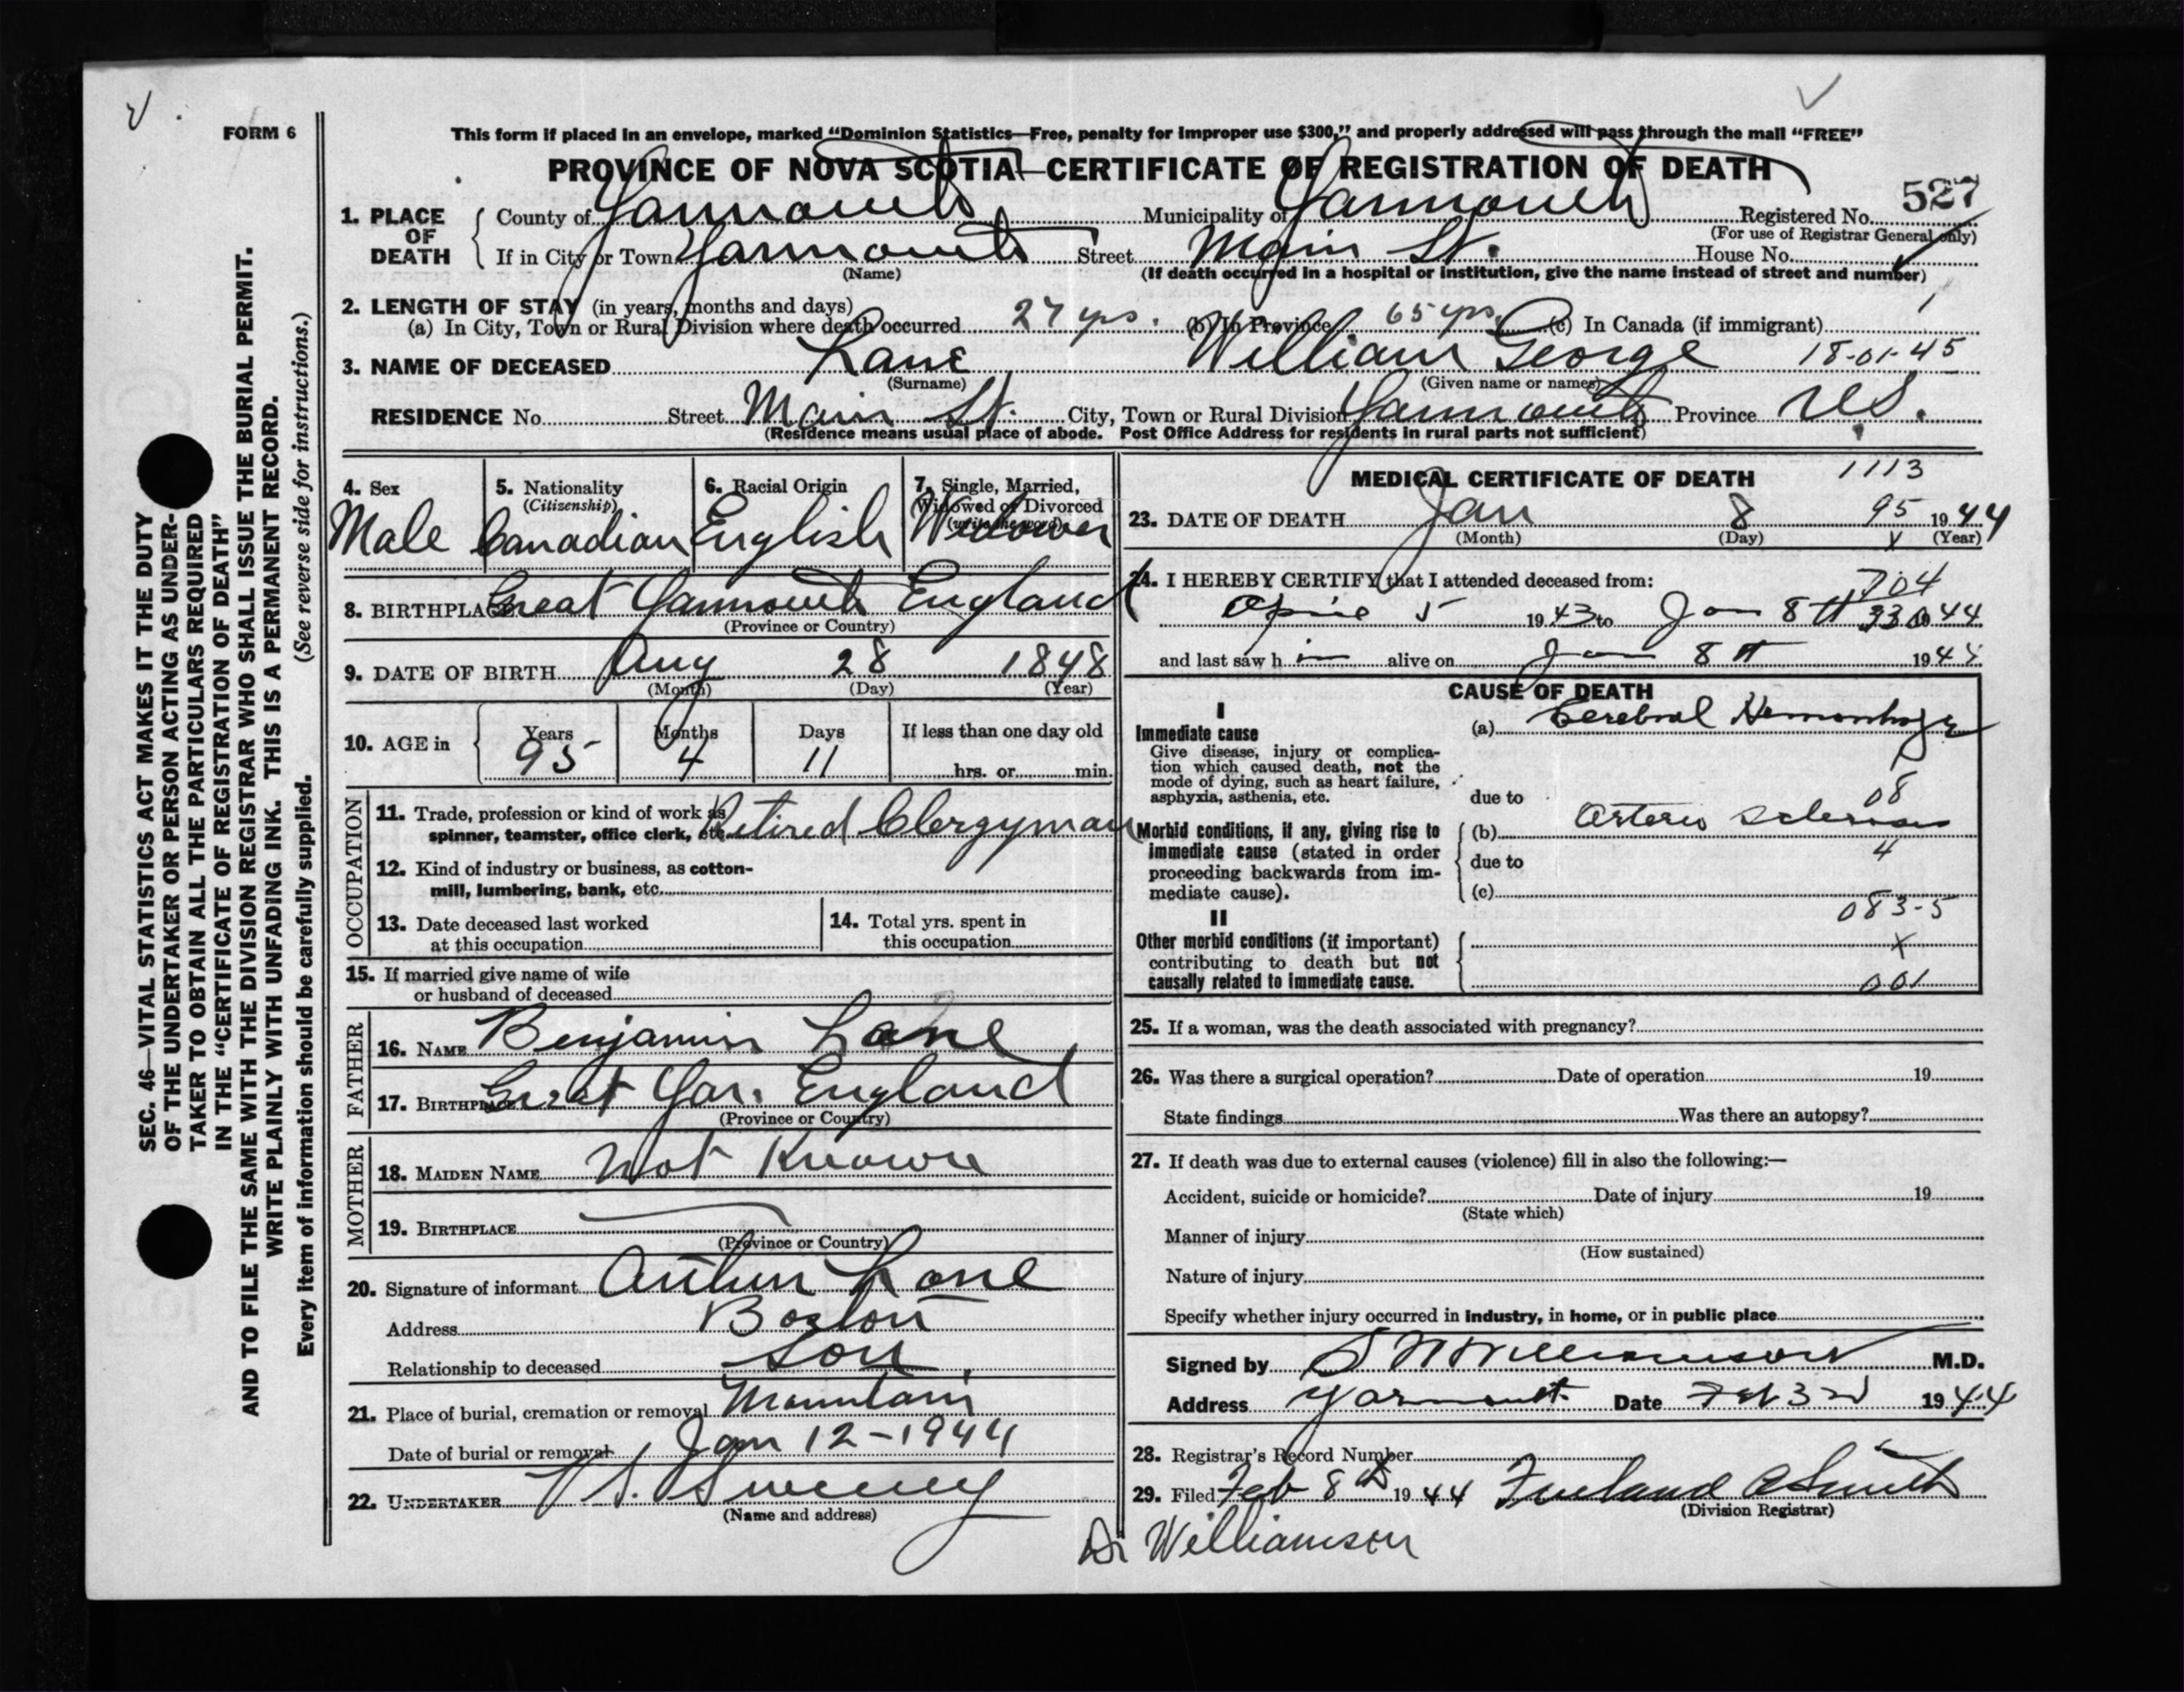 FORM 6
This form if placed in an envelope, marked "Dominion Statistics—Free, penalty for improper use $300," and properly addressed will pass through the mail "FREE"
PROVINCE OF NOVA SCOTIA—CERTIFICATE OF REGISTRATION OF DEATH
527
1. PLACE OF DEATH County of Yarmouth Municipality of Yarmouth Registered No.
(For use of Registrar General only)
If in City or Town Yarmouth Street Main St. House No.
(Name) (If death occurred in a hospital or institution, give the name instead of street and number)
2. LENGTH OF STAY (in years, months and days)
(a) In City, Town or Rural Division where death occurred 27 yrs. (b) In Province 65 yrs. (c) In Canada (if immigrant)
3. NAME OF DECEASED Lane William George 18-01-45
(Surname) (Given name or names)
RESIDENCE No. Street Main St. City, Town or Rural Division Yarmouth Province N.S.
(Residence means usual place of abode. Post Office Address for residents in rural parts not sufficient)
4. Sex 5. Nationality (Citizenship) 6. Racial Origin 7. Single, Married, Widowed or Divorced (write the word)
Male Canadian English Widower
8. BIRTHPLACE Great Yarmouth England
(Province or Country)
9. DATE OF BIRTH Aug 28 1848
(Month) (Day) (Year)
10. AGE in Years Months Days If less than one day old
95 4 11 hrs. or min.
OCCUPATION
11. Trade, profession or kind of work as
spinner, teamster, office clerk, etc. Retired Clergyman
12. Kind of industry or business, as cotton-
mill, lumbering, bank, etc.
13. Date deceased last worked
at this occupation
14. Total yrs. spent in
this occupation
15. If married give name of wife
or husband of deceased
FATHER
16. NAME Benjamin Lane
17. BIRTHPLACE Great Yar. England
(Province or Country)
MOTHER
18. MAIDEN NAME Not Known
19. BIRTHPLACE
(Province or Country)
20. Signature of informant Arthur Lane
Address Boston
Relationship to deceased Son
21. Place of burial, cremation or removal Mountain
Date of burial or removal Jan 12-1944
22. UNDERTAKER V S. Sweeny
(Name and address)
MEDICAL CERTIFICATE OF DEATH 1113
23. DATE OF DEATH Jan 8 95 1944
(Month) (Day) (Year)
24. I HEREBY CERTIFY that I attended deceased from: 704
April 5 1943 to Jan 8th 1944
and last saw him alive on Jan 8th 1944
CAUSE OF DEATH
I
Immediate cause
Give disease, injury or complica-
tion which caused death, not the
mode of dying, such as heart failure,
asphyxia, asthenia, etc.
(a) Cerebral Hemorrhage
due to 08
Morbid conditions, if any, giving rise to
immediate cause (stated in order
proceeding backwards from im-
mediate cause).
(b) Arterio sclerosis
due to 4
(c)
083-5
II
Other morbid conditions (if important)
contributing to death but not
causally related to immediate cause.
X
001
25. If a woman, was the death associated with pregnancy?
26. Was there a surgical operation? Date of operation 19
State findings Was there an autopsy?
27. If death was due to external causes (violence) fill in also the following:—
Accident, suicide or homicide? Date of injury 19
(State which)
Manner of injury
(How sustained)
Nature of injury
Specify whether injury occurred in industry, in home, or in public place
Signed by S W Williamson M.D.
Address Yarmouth Date Feb 3rd 1944
28. Registrar's Record Number
29. Filed Feb 8th 1944 Smith
(Division Registrar)
Dr Williamson
SEC. 46—VITAL STATISTICS ACT MAKES IT THE DUTY
OF THE UNDERTAKER OR PERSON ACTING AS UNDER-
TAKER TO OBTAIN ALL THE PARTICULARS REQUIRED
IN THE "CERTIFICATE OF REGISTRATION OF DEATH"
AND TO FILE THE SAME WITH THE DIVISION REGISTRAR WHO SHALL ISSUE THE BURIAL PERMIT.
WRITE PLAINLY WITH UNFADING INK. THIS IS A PERMANENT RECORD.
Every item of information should be carefully supplied. (See reverse side for instructions.)